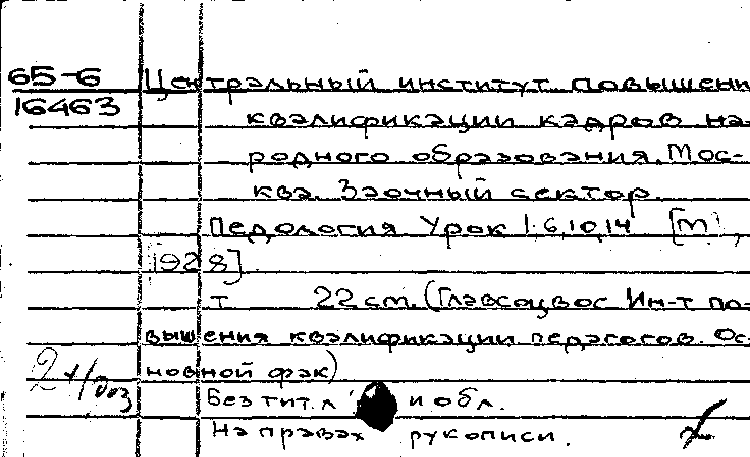 65-6
16463
Центральный институт повышени
квалификации кадров на-
родного образования. Мос-
ква. Заочный сектор.
Педология Урок 1.6,10,14 [М.,
1928]
т 22 см. (Главсоцвос Ин-т по-
вышения квалификации педагогов. Ос-
новной фак)
Без тит. л и обл.
На правах рукописи.